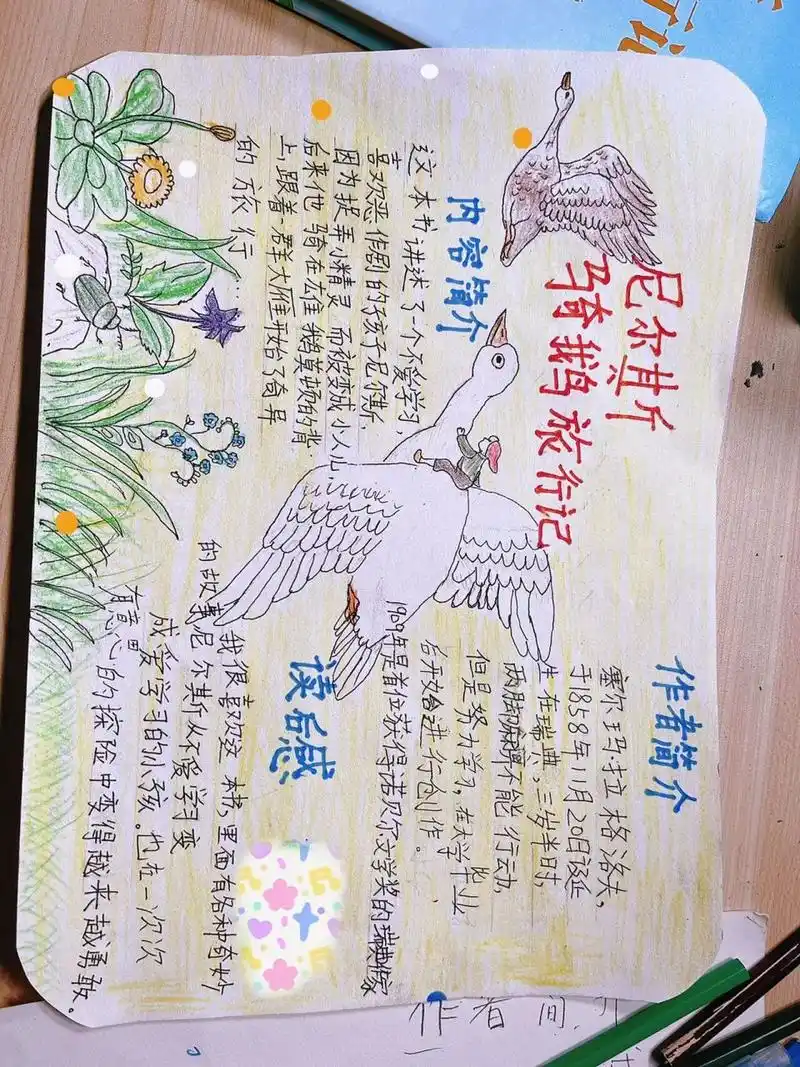 尼尔斯
骑鹅旅行记
内容简介
这本书讲述了一个不爱学习,
喜欢恶作剧的孩子尼尔斯,
因为捉弄小精灵而被变成小人儿,
后来他骑在雄鹅莫顿的背
上,跟着一群大雁开始了奇异
的旅行…
作者简介
塞尔玛·拉格洛夫,
于1858年11月20日诞
生在瑞典,三岁半时,
两脚麻痹不能行动,
但是努力学习,在大学毕业
后开始进行创作。
1909年是首位获得诺贝尔文学奖的瑞典作家
读后感
我很喜欢这本书,里面有各种奇妙
的故事尼尔斯从不爱学习变
成爱学习的小孩。也在一次次
有意思的探险中变得越来越勇敢。
作者简介